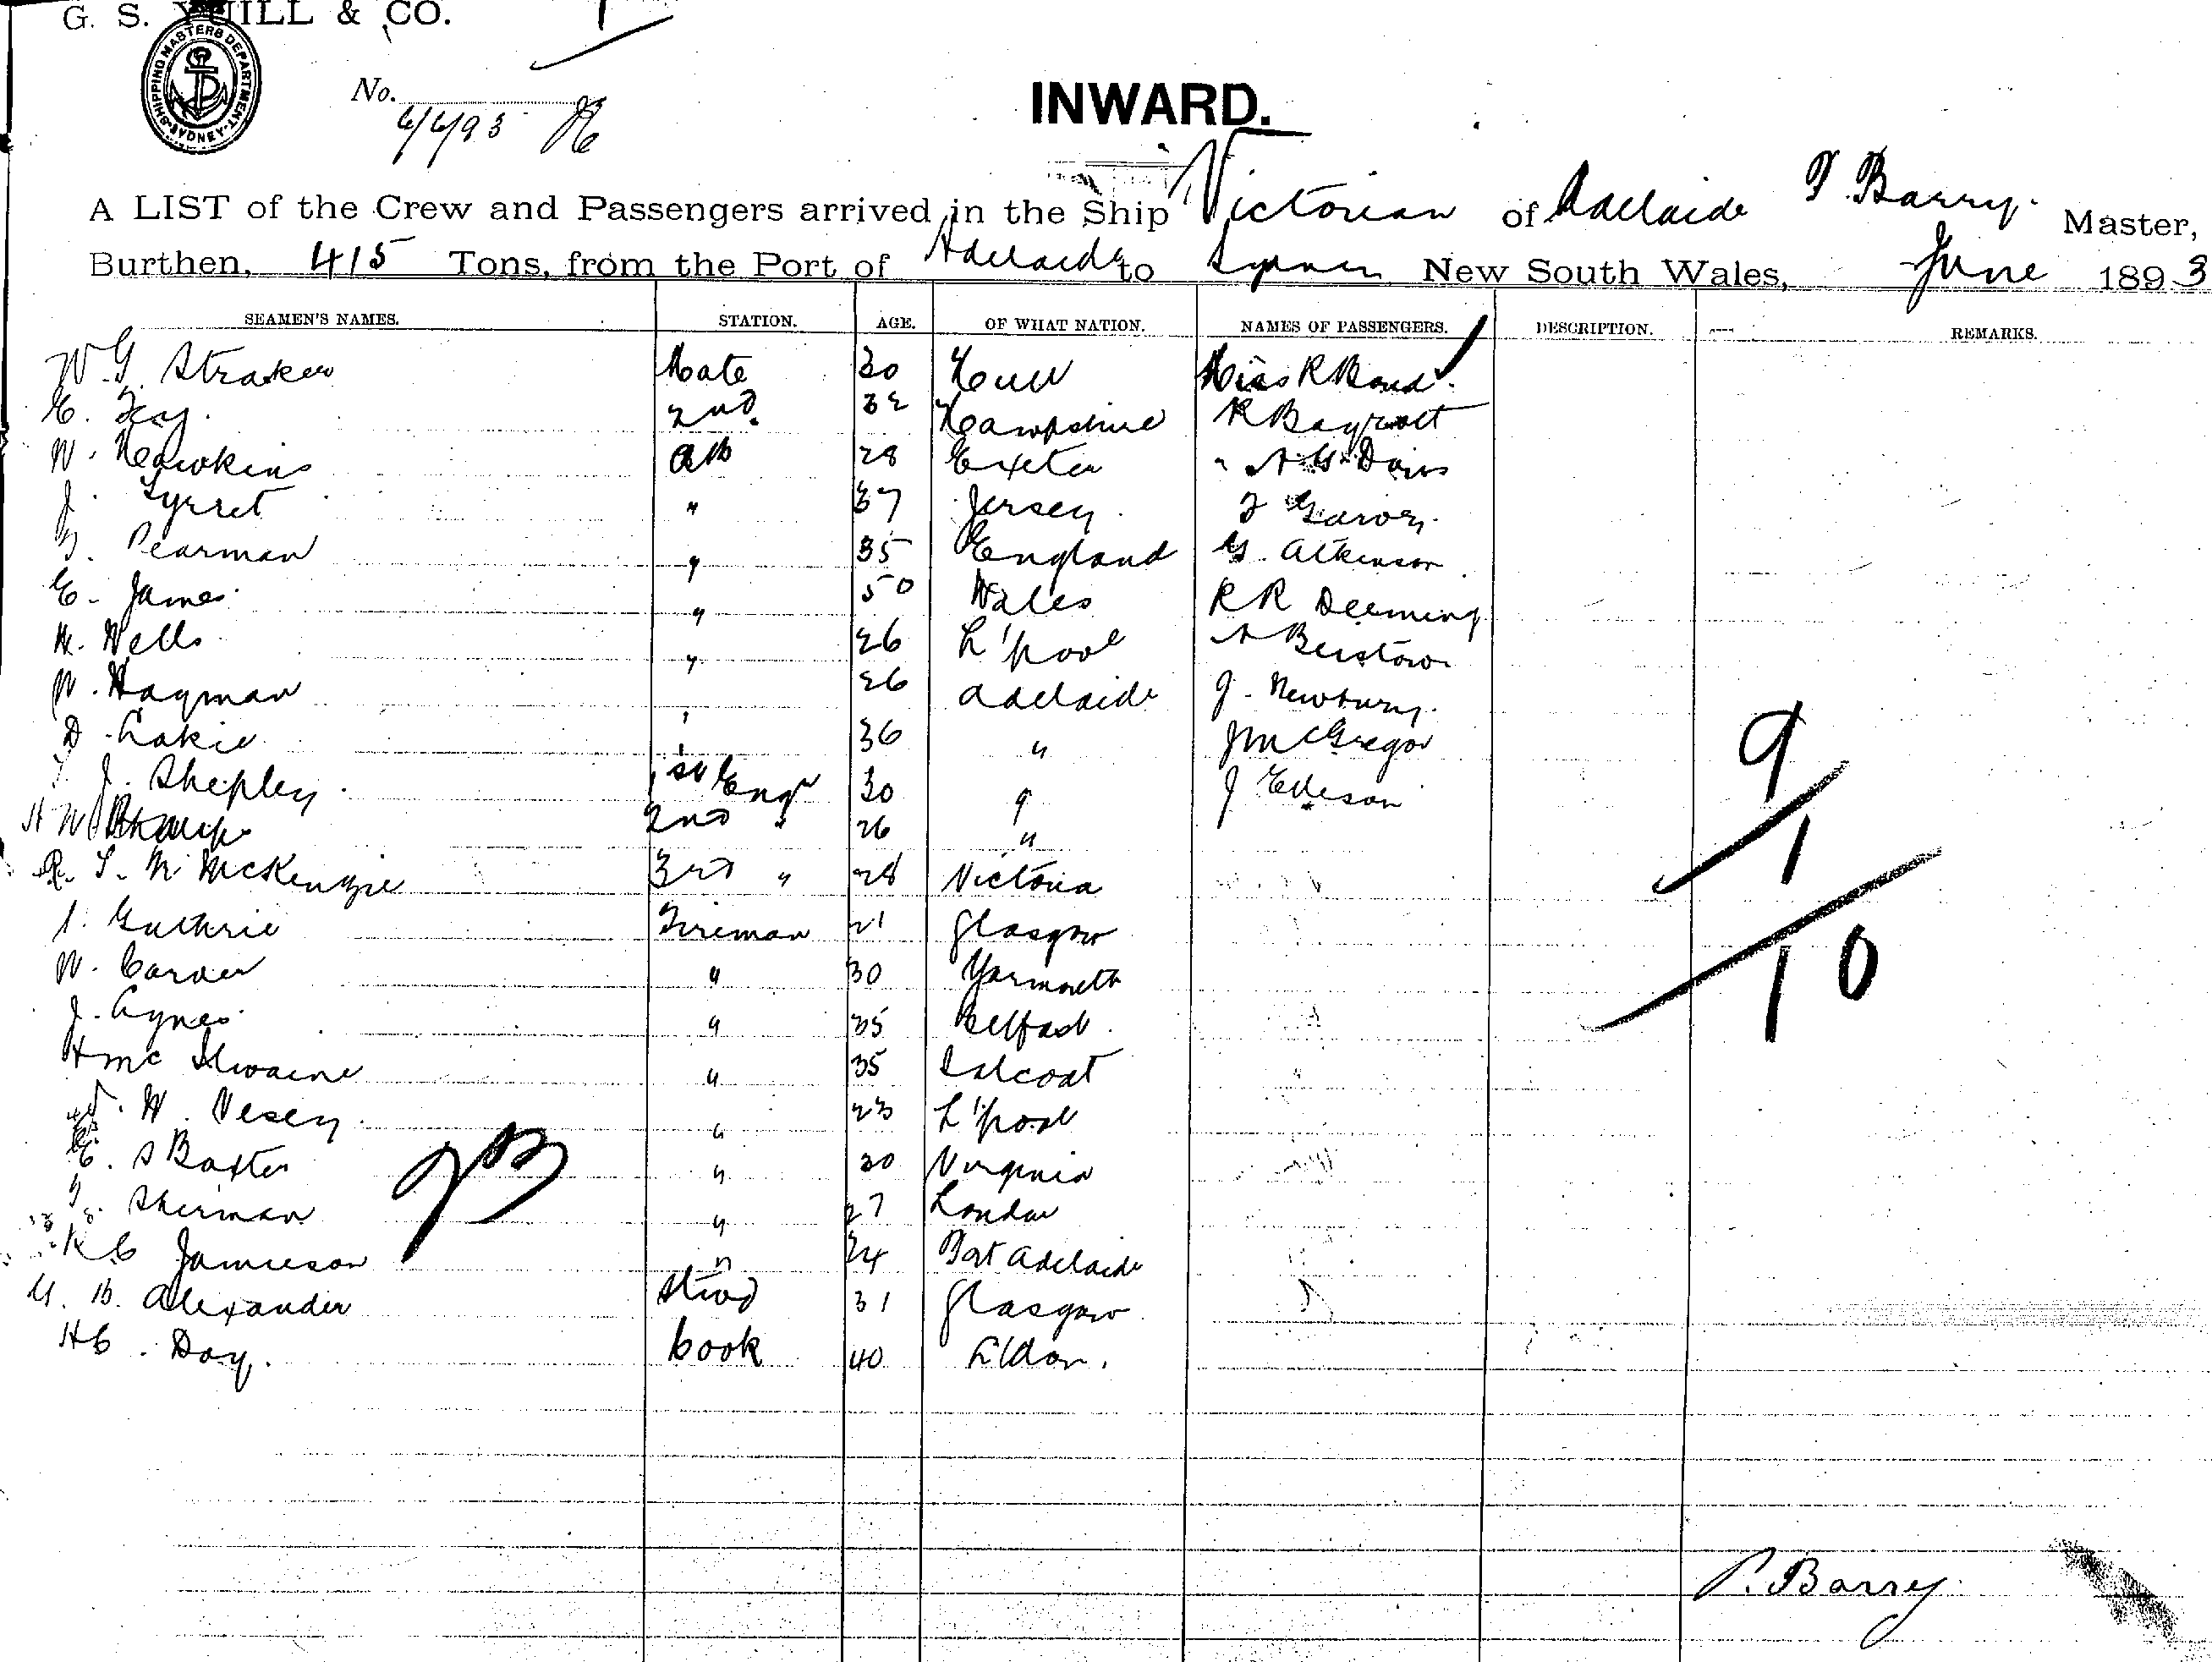 G. S. YUILL & CO.
SHIPPING MASTERS DEPARTMENT SYDNEY
No.
6/6/93
INWARD.
A LIST of the Crew and Passengers arrived in the Ship Victorian of Adelaide P. Barry. Master,
Burthen, 415 Tons, from the Port of Adelaide to Sydney New South Wales, June 1893
SEAMEN'S NAMES. STATION. AGE. OF WHAT NATION. NAMES OF PASSENGERS. DESCRIPTION. REMARKS.
W. G. Straker Mate 30 Hull Miss R Bond
E. 2nd. 32 Hampshire R
W. Hawkins AB 28 Exeter " Davis
J. Syrret " 37 Jersey
G. Pearman " 35 England G. Atkinson
E. James " 50 Wales R R Deeming
H. Wells " 26 L'pool
W. Hayman " 26 Adelaide J. Newbury.
D. Lakie " 36 " J McGregor
J. Shepley 1st Engr 30 " J Ellison
H W Sharp 2nd " 26 "
R. L. M. McKenzie 3rd " 28 Victoria
Guthrie Fireman 21 Glasgow
W. Carver " 30 Yarmouth
J. Agnes " 35 Belfast
H McIlwaine " 35 Salcoat
W. Vesey " 23 L'pool
E. S Baxter " 30 Virginia
Sherman " 27 London
K C Jamieson " 24 Port Adelaide
G. B. Alexander Stwd 31 Glasgow
H C. Day. Cook 40
9
1
10
PB
P. Barry